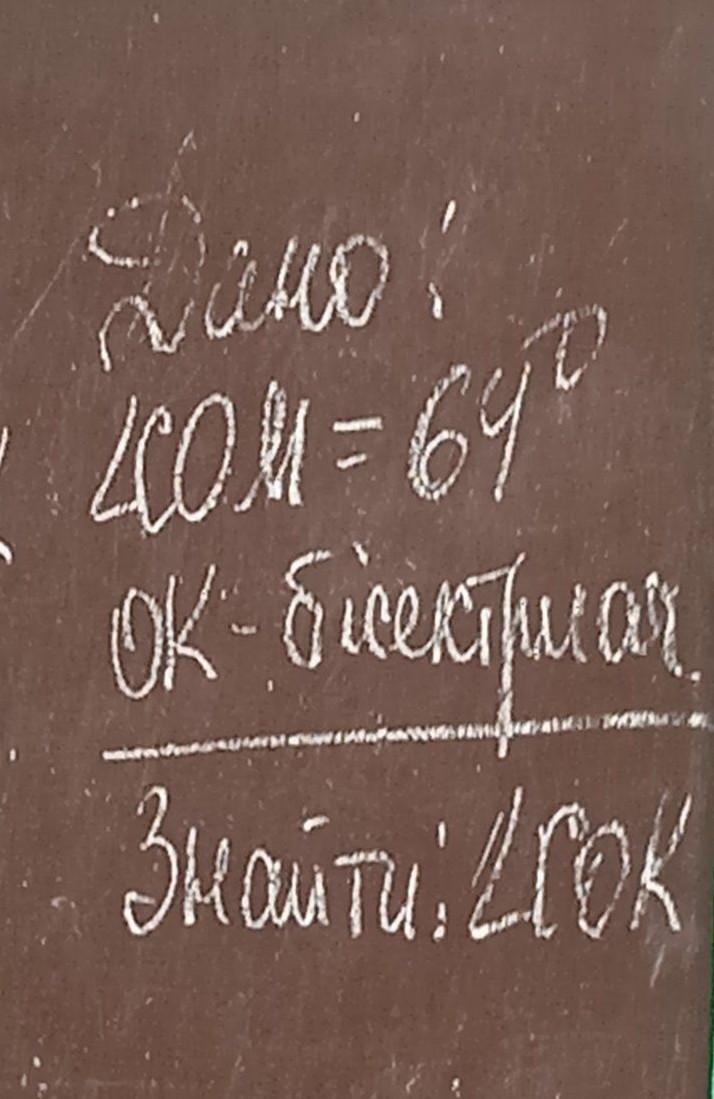 Дано:
∠COM = 64°
OK - бісектриса
Знайти: ∠COK